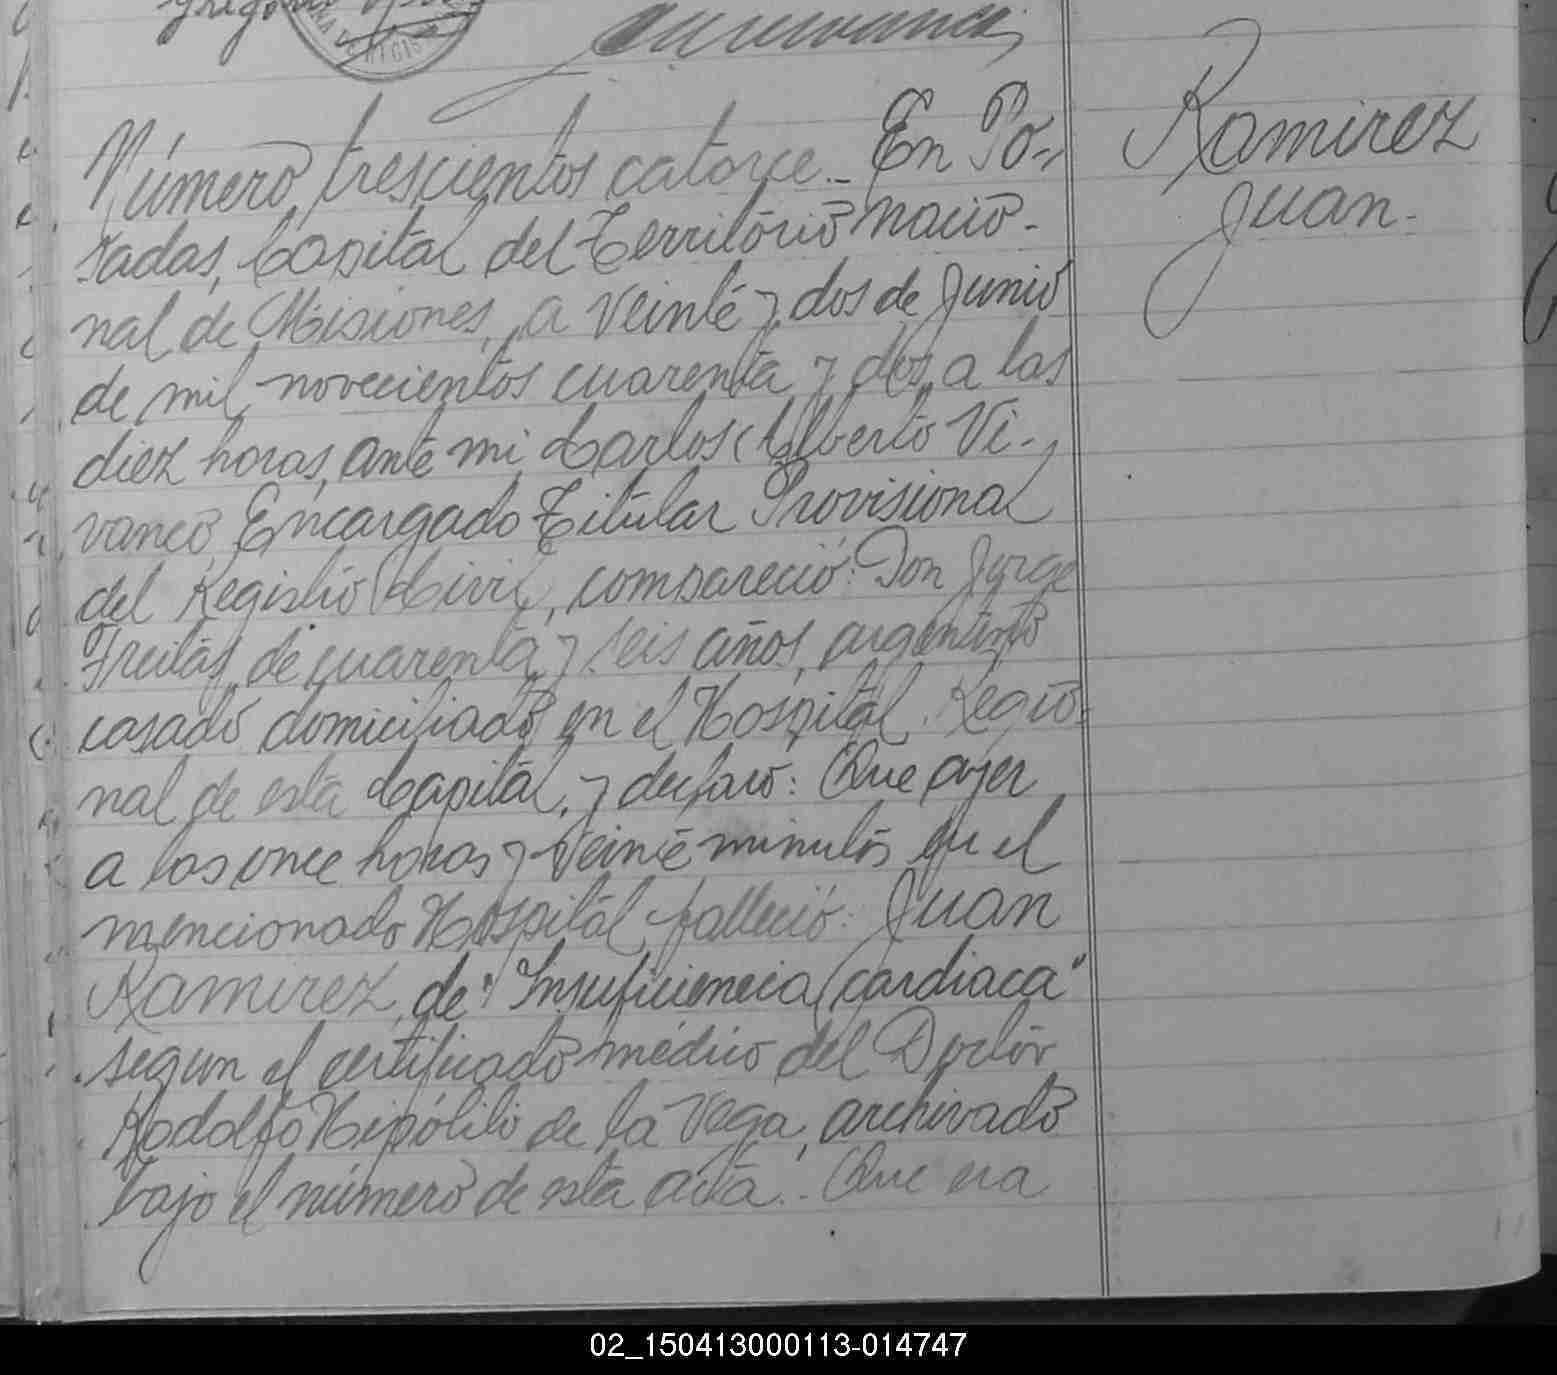 Número trescientos catorce._ En Po-
sadas, Capital del Territorio nacio-
nal de Misiones, a veinte y dos de Junio
de mil novecientos cuarenta y dos, a las
diez horas, ante mi Carlos Alberto Vi-
vanco Encargado Titular Provisional
del Registro Civil, compareció: Don Jorge
Freitas, de cuarenta y seis años, argentino
casado domiciliado en el Hospital Regio-
nal de esta Capital, y declaro: Que ayer
a las once horas y veinte minutos en el
mencionado Hospital, falleció: Juan
Ramirez, de "Insuficiencia cardiaca"
segun el certificado médico del Doctor
Rodolfo Hipólito de la Vega, archivado
bajo el número de esta acta.- Que era
Ramirez
Juan.
02_150413000113-014747